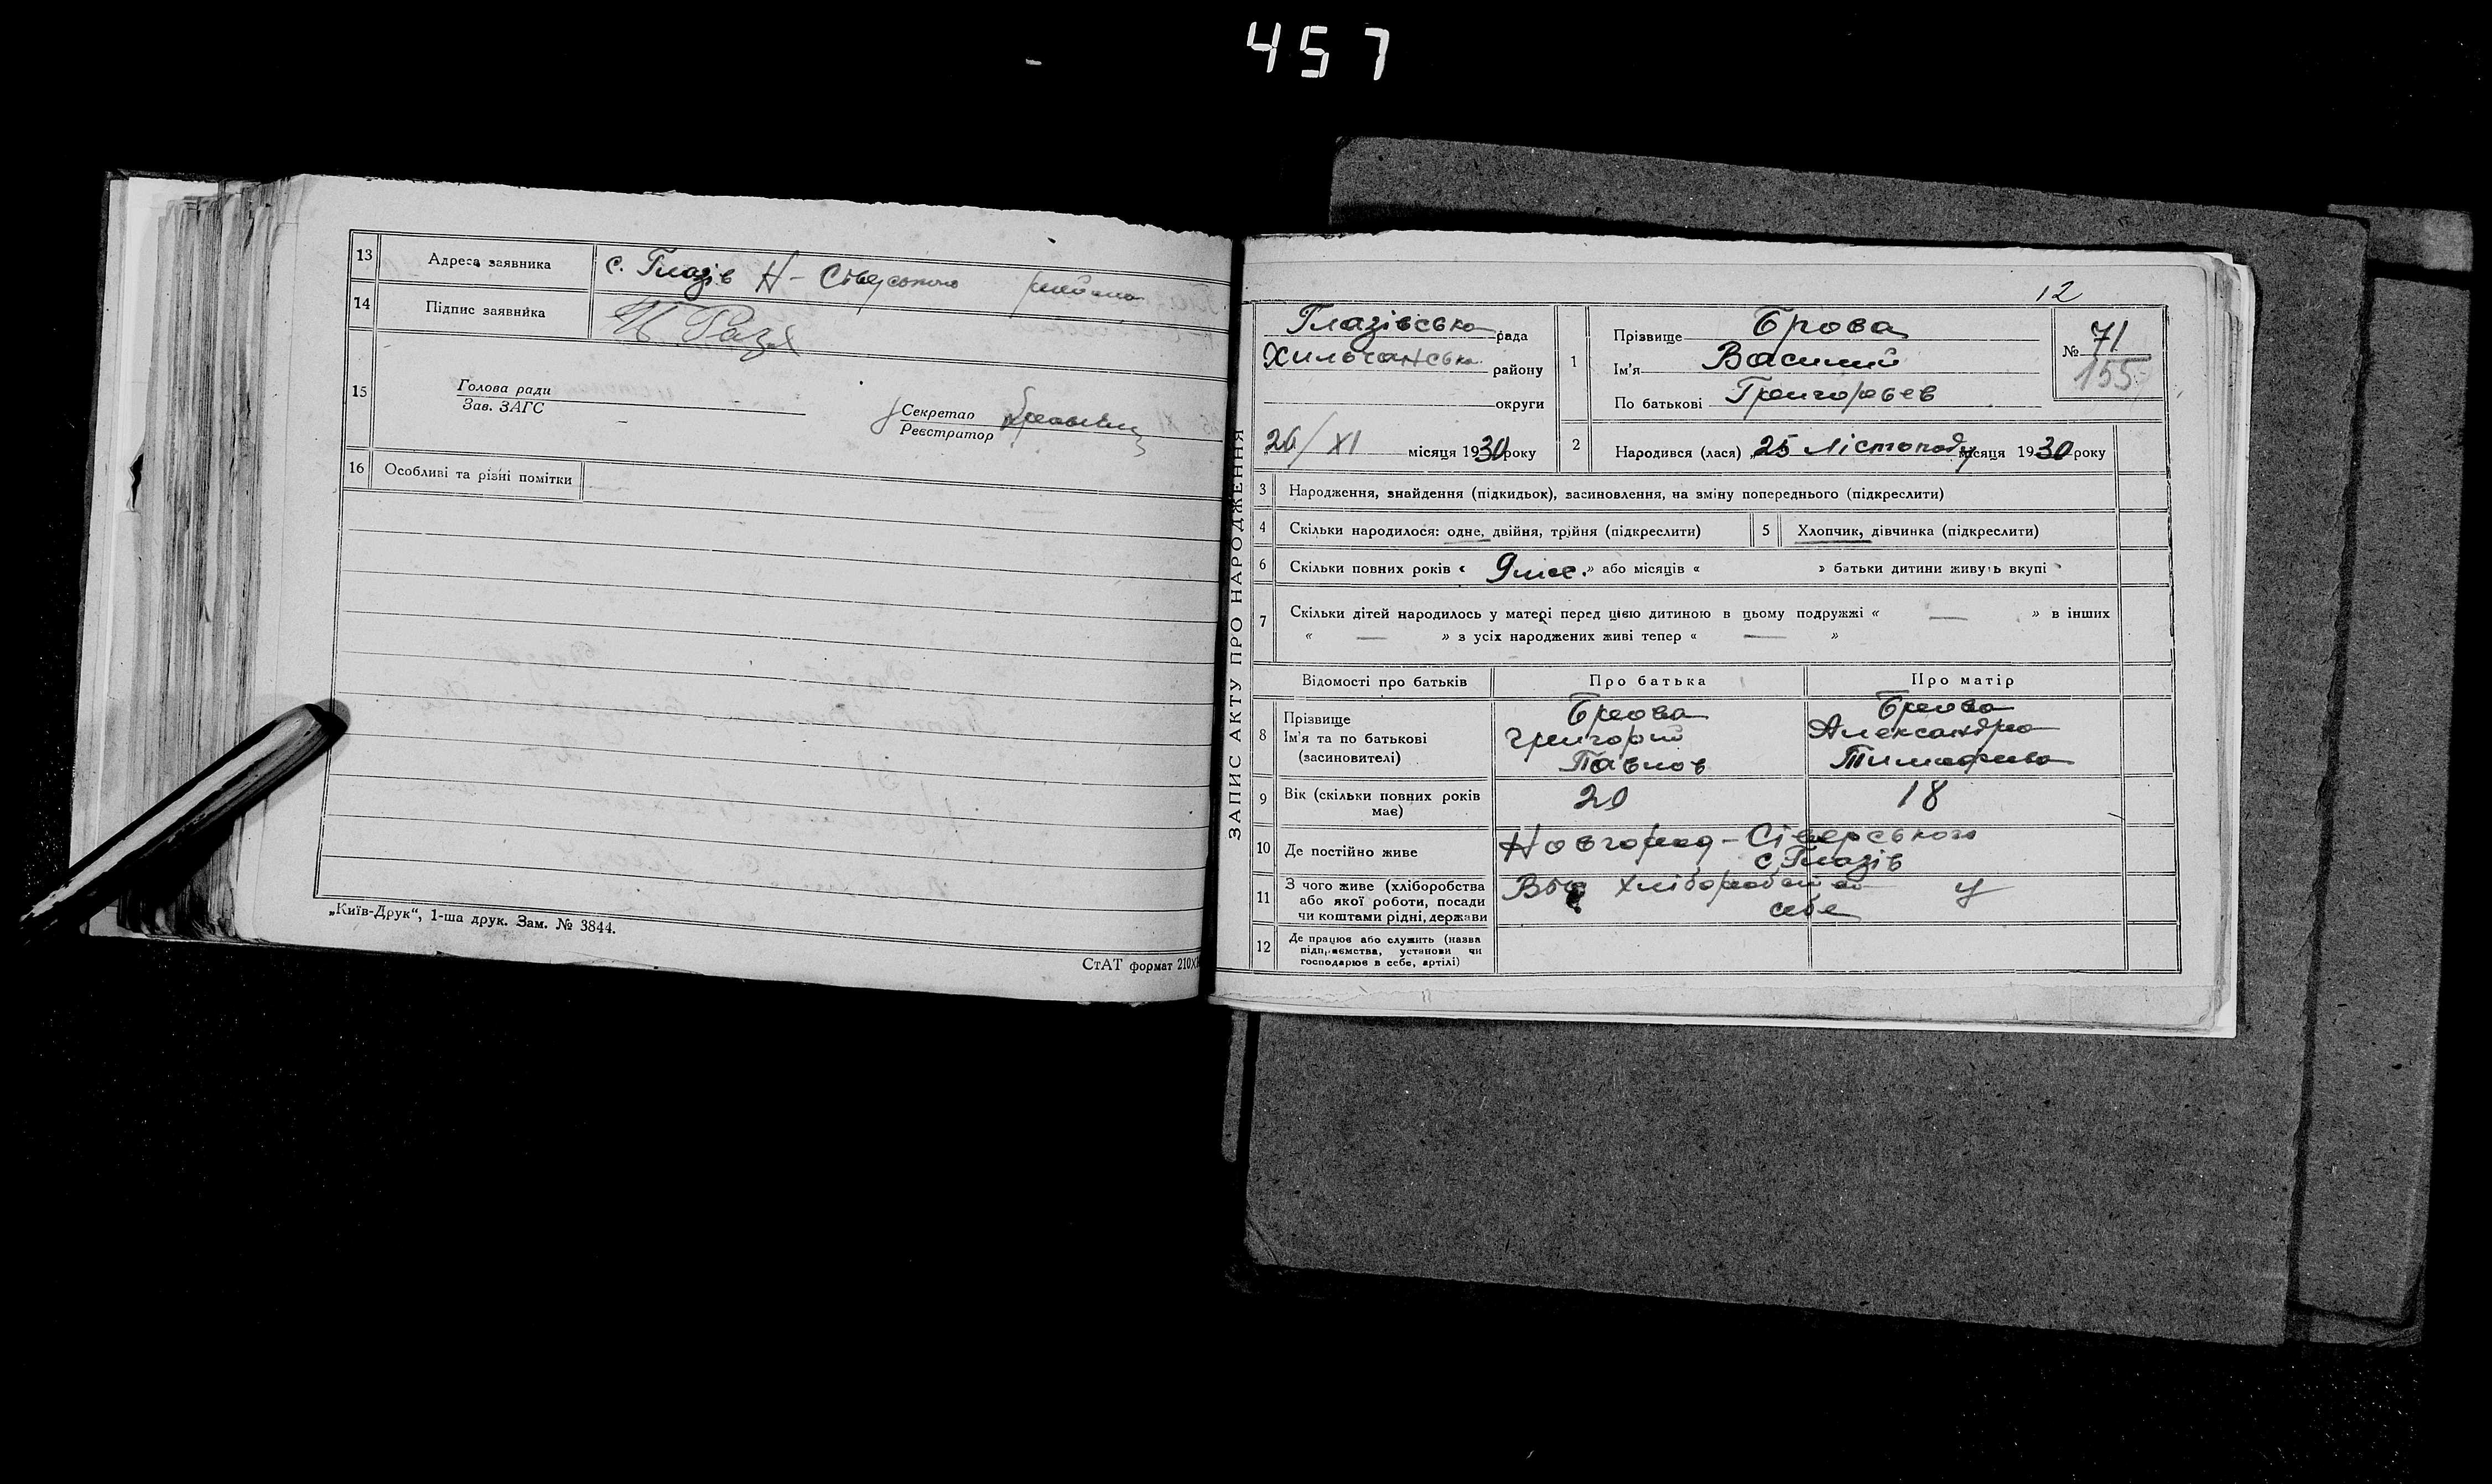 457
13 Адреса заявника с. Глазів Н-Сіверського района
14 Підпис заявника
15 Голова ради
Зав. ЗАГС
Секретар
Реєстратор
16 Особливі та різні помітки
„Київ-Друк“, 1-ша друк. Зам. № 3844.
СтАТ формат 210х
ЗАПИС АКТУ ПРО НАРОДЖЕННЯ
12
Глазівська рада
Хильчанська району
округи
26/XI місяця 1930 року
1 Прізвище Брова
Ім'я Василий
По батькові Григорьев
№ 71
155
2 Народився (лася) 25 Лістопаду місяця 1930 року
3 Народження, знайдення (підкидьок), засиновлення, на зміну попереднього (підкреслити)
4 Скільки народилося: одне, двійня, трійня (підкреслити) 5 Хлопчик, дівчинка (підкреслити)
6 Скільки повних років « 9 мес. » або місяців « » батьки дитини живуть вкупі
7 Скільки дітей народилось у матері перед цією дитиною в цьому подружжі « — » в інших
« — » з усіх народжених живі тепер « — »
Відомості про батьків Про батька Про матір
8 Прізвище
Ім'я та по батькові
(засиновителі)
Брова
Григорий
Павлов
Брова
Александра
Тимофеева
9 Вік (скільки повних років
має)
20 18
10 Де постійно живе Новгород-Сіверського
с. Глазів
11 З чого живе (хліборобства
або якої роботи, посади
чи коштами рідні, держави
хліборобства у
себе
12 Де працює або служить (назва
підприємства, установи чи
господарює в себе, артілі)